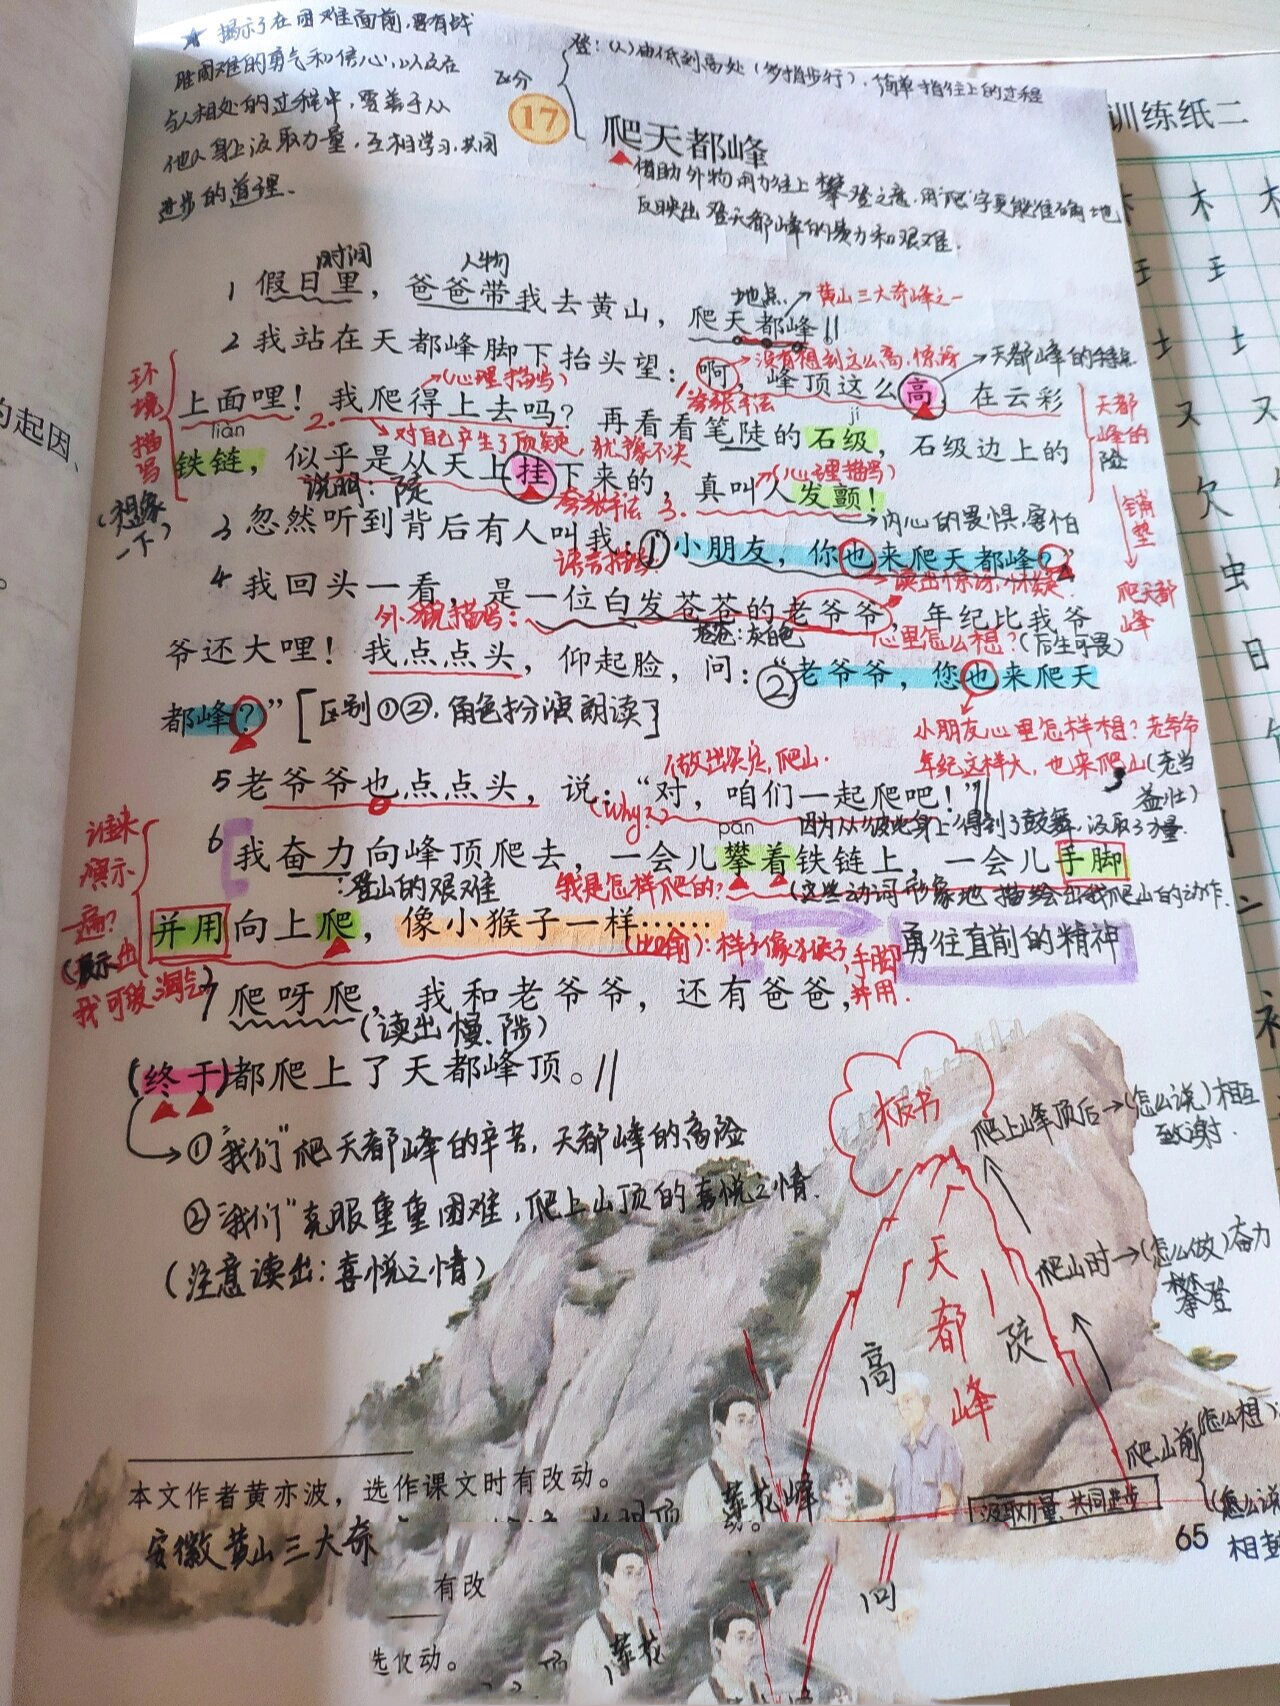 ★ 揭示了在困难面前,要有战
胜困难的勇气和信心,以及在
与人相处的过程中,要善于从
他人身上汲取力量,互相学习,共同
进步的道理.
登:(1)由低到高处(多指步行).简单指往上的过程
区分
17
爬天都峰
借助外物用力往上攀登之意.用"爬"字更能准确地
反映出登天都峰的费力和艰难.
训练纸二
时间
人物
1 假日里，爸爸带我去黄山，爬天都峰。
地点
黄山三大奇峰之一
2 我站在天都峰脚下抬头望：啊，峰顶这么高，在云彩
没有想到这么高.惊讶
天都峰的特点
(心理描写)
夸张手法
环境描写
上面哩！我爬得上去吗？再看看笔陡的石级，石级边上的
对自己产生了质疑,犹豫不决
天都峰的险
lián
jí
铁链，似乎是从天上挂下来的，真叫人发颤！
说明:陡
夸张手法
(心理描写)
内心的畏惧.害怕
(想象一下)
铺垫
爬天都峰
3 忽然听到背后有人叫我：①"小朋友，你也来爬天都峰？"
语言描写
读出惊讶
4 我回头一看，是一位白发苍苍的老爷爷，年纪比我爷
外貌描写:
苍苍:灰白色
心里怎么想?(后生可畏)
爷还大哩！我点点头，仰起脸，问：②"老爷爷，您也来爬天
都峰？"
[区别①②,角色扮演朗读]
小朋友心里怎样想?老爷爷
年纪这样大,也来爬山(老当
益壮)
做出决定,爬山.
5 老爷爷也点点头，说："对，咱们一起爬吧！"
(why?)
因为从彼此身上得到了鼓舞.汲取了力量.
pān
6 我奋力向峰顶爬去，一会儿攀着铁链上，一会儿手脚
:登山的艰难
我是怎样爬的?
(这些动词形象地描绘出我爬山的动作.
谁来演示一遍?
(展示出我可爱.淘气)
并用向上爬，像小猴子一样……
(比喻):样子像猴子,手脚
并用.
勇往直前的精神
7 爬呀爬，我和老爷爷，还有爸爸，
(读出慢.陡)
(终于)都爬上了天都峰顶。
①"我们"爬天都峰的辛苦,天都峰的高险
②"我们"克服重重困难,爬上山顶的喜悦之情.
(注意读出:喜悦之情)
板书
爬上峰顶后→(怎么说)相互
致谢.
爬山时→(怎么做)奋力
攀登
天都峰
高
陡
爬山前
(怎么想)
(怎么说
汲取力量 共同进步
本文作者黄亦波，选作课文时有改动。
莲花峰
65
安徽黄山三大奇
有改
莲花